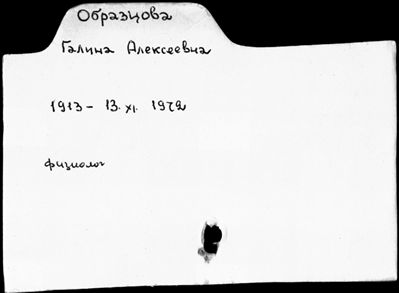 Образцова
Галина Алексеевна
1913 – 13. XI. 1972
физиолог